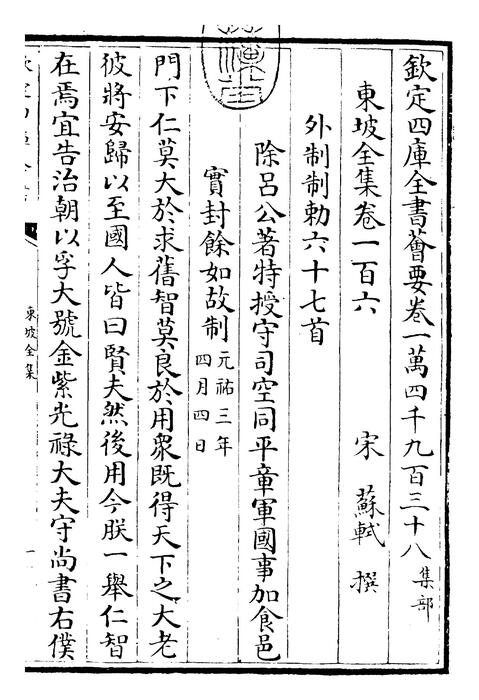 欽定四庫全書薈要卷一萬四千九百三十八集部
東坡全集卷一百六
宋蘇軾撰
外制制勅六十七首
除呂公著特授守司空同平章軍國事加食邑
實封餘如故制元祐三年四月四日
門下仁莫大於求舊智莫良於用衆既得天下之大老
彼將安歸以至國人皆曰賢夫然後用今朕一舉仁智
在焉宜告治朝以孚大號金紫光祿大夫守尚書右僕
東坡全集